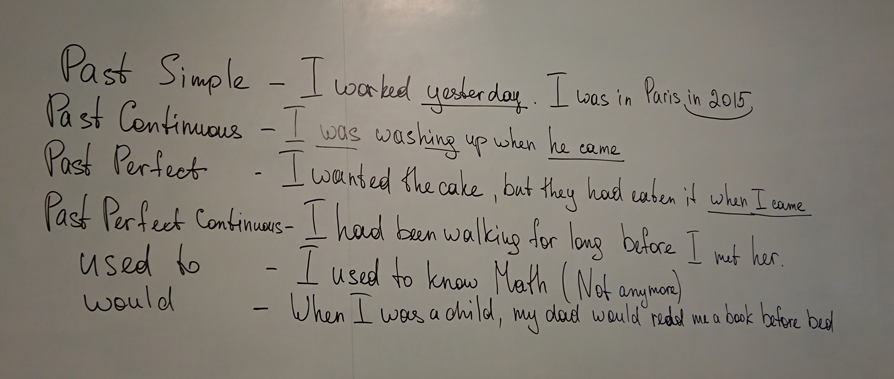 Past Simple - I worked yesterday. I was in Paris in 2015
Past Continuous - I was washing up when he came
Past Perfect - I wanted the cake, but they had eaten it when I came
Past Perfect Continuous - I had been walking for long before I met her.
used to - I used to know Math (Not anymore)
would - When I was a child, my dad would read me a book before bed